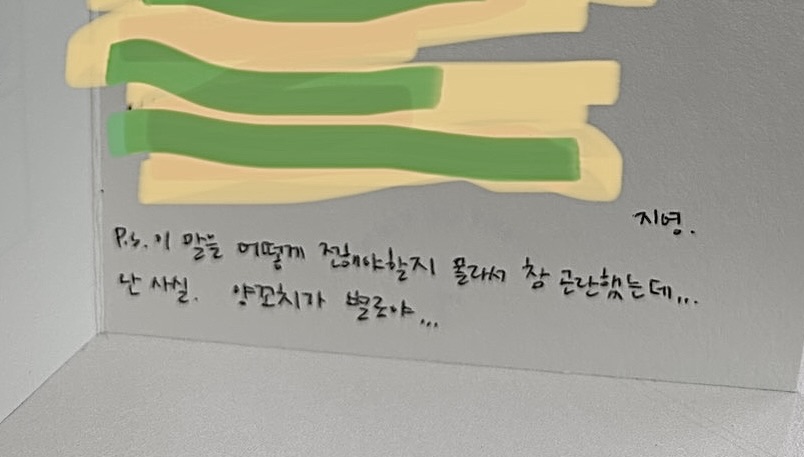 지영.
P.s. 이 말을 어떻게 전해야할지 몰라서 참 곤란했는데...
난 사실. 양꼬치가 별로야...